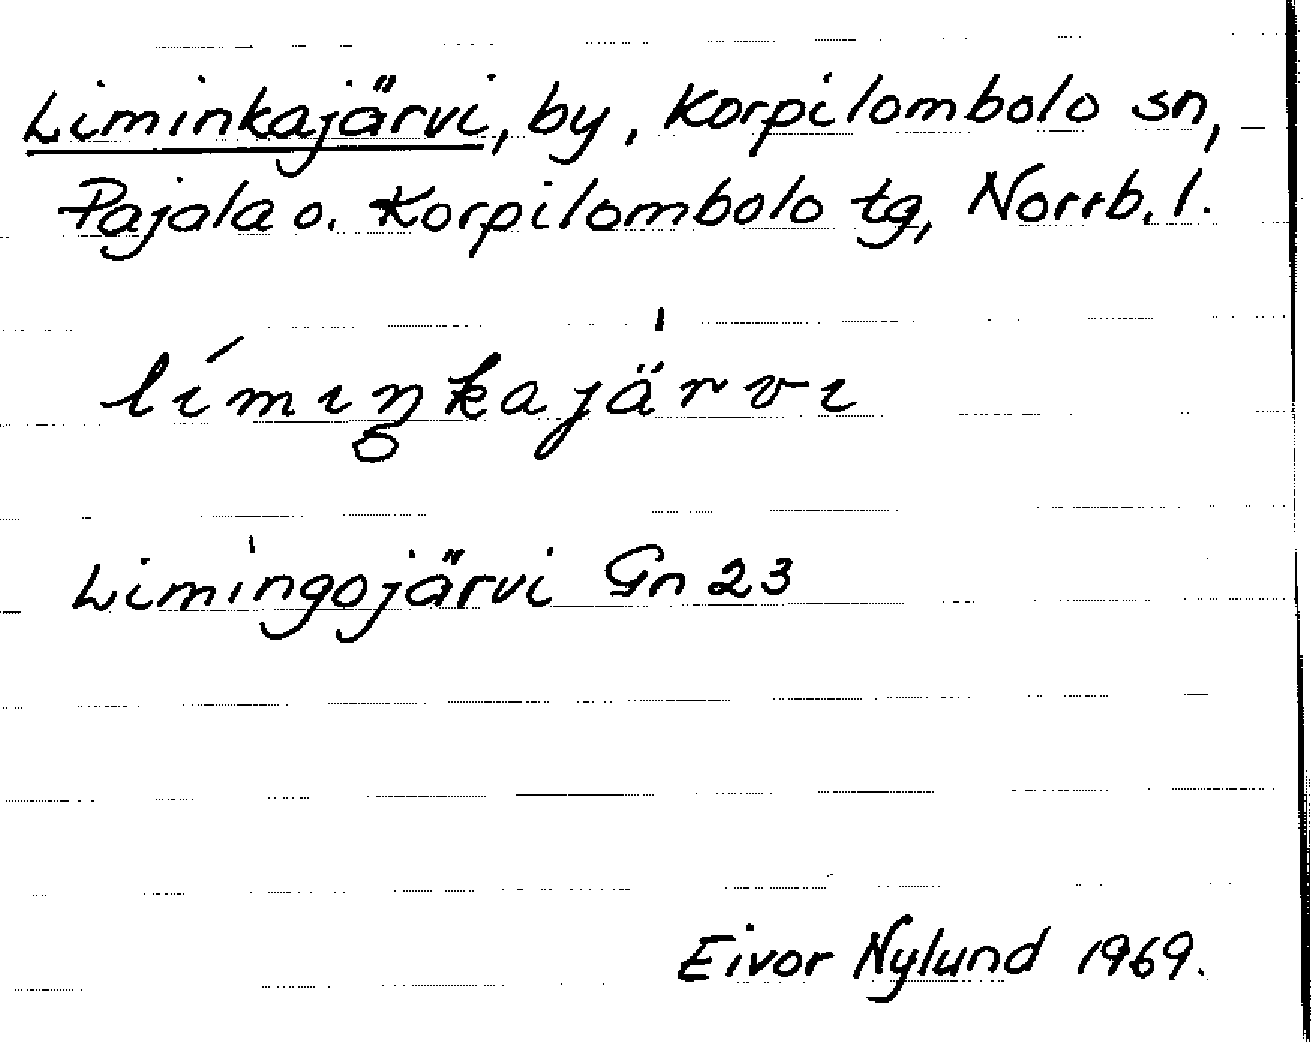 Liminkajärvi, by, Korpilombolo sn,
Pajala o. Korpilombolo tg, Norrb. l.
límiŋkajä̍rvi
Limingojärvi Gn 23
Eivor Nylund 1969.